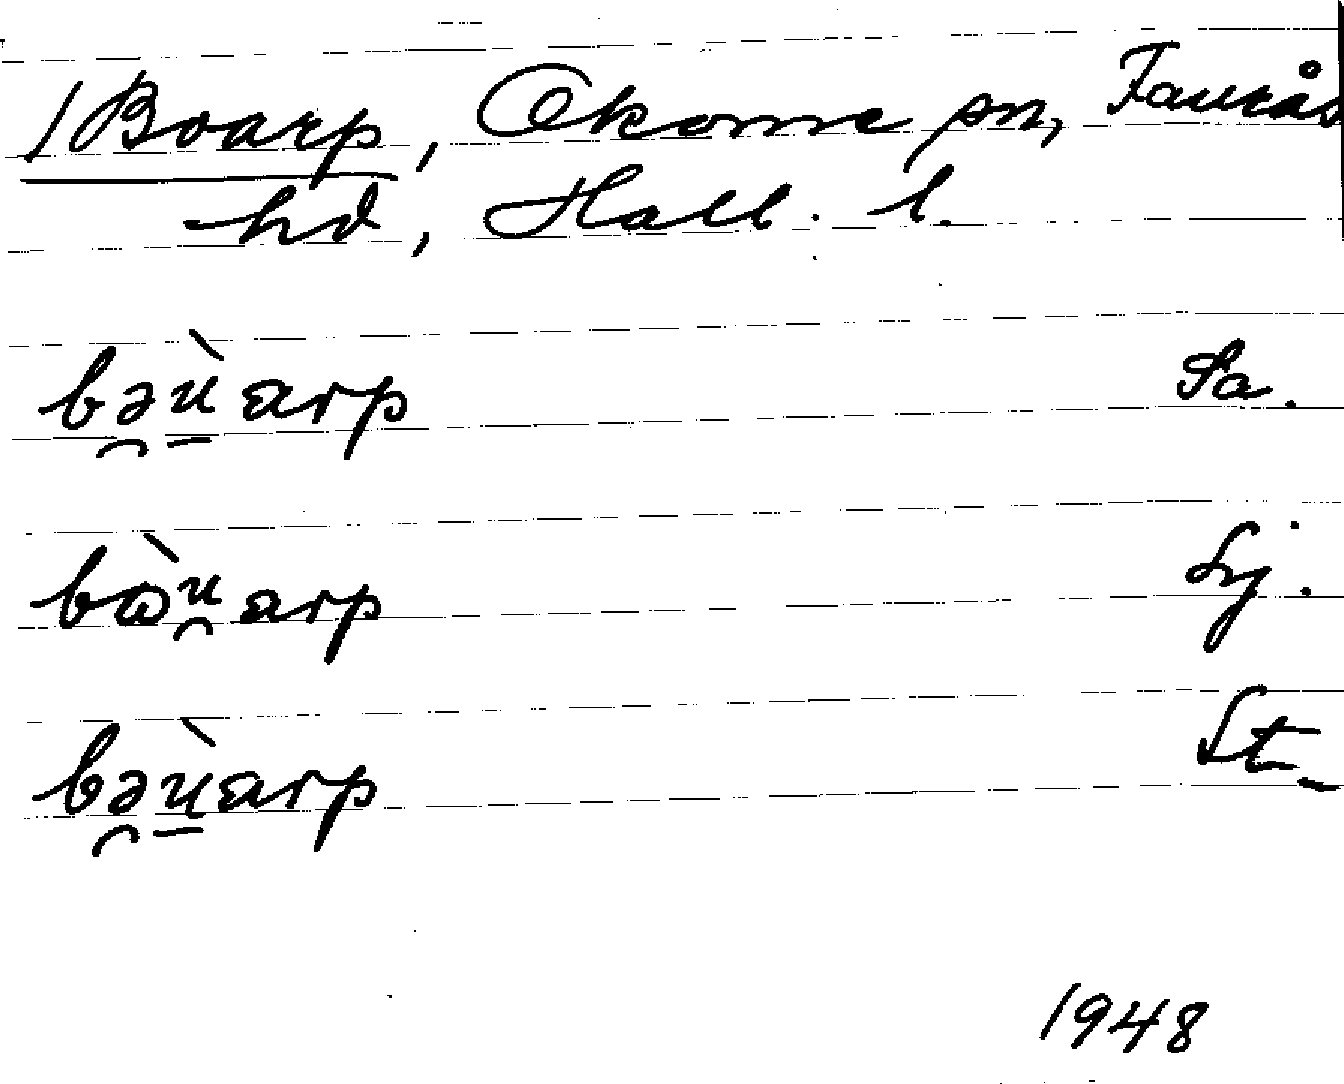 /Boarp, Okome sn, Faurås
hd, Hall. l.
bəù̠arp Sa.
bɷ̀u̯arp Lj.
bəù̠arp St_
1948